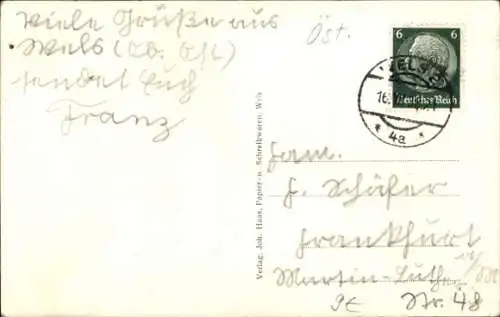 Viele Grüße aus
Wels (Ob. Öst.)
sendet Euch
Franz
Öst.
6 6
Deutsches Reich
WELS
16.
* 4a *
Verlag Joh. Haas, Papier- u. Schreibwaren, Wels
Fam.
F. Schäfer
Frankfurt
Martin-Luther
Nr. 48